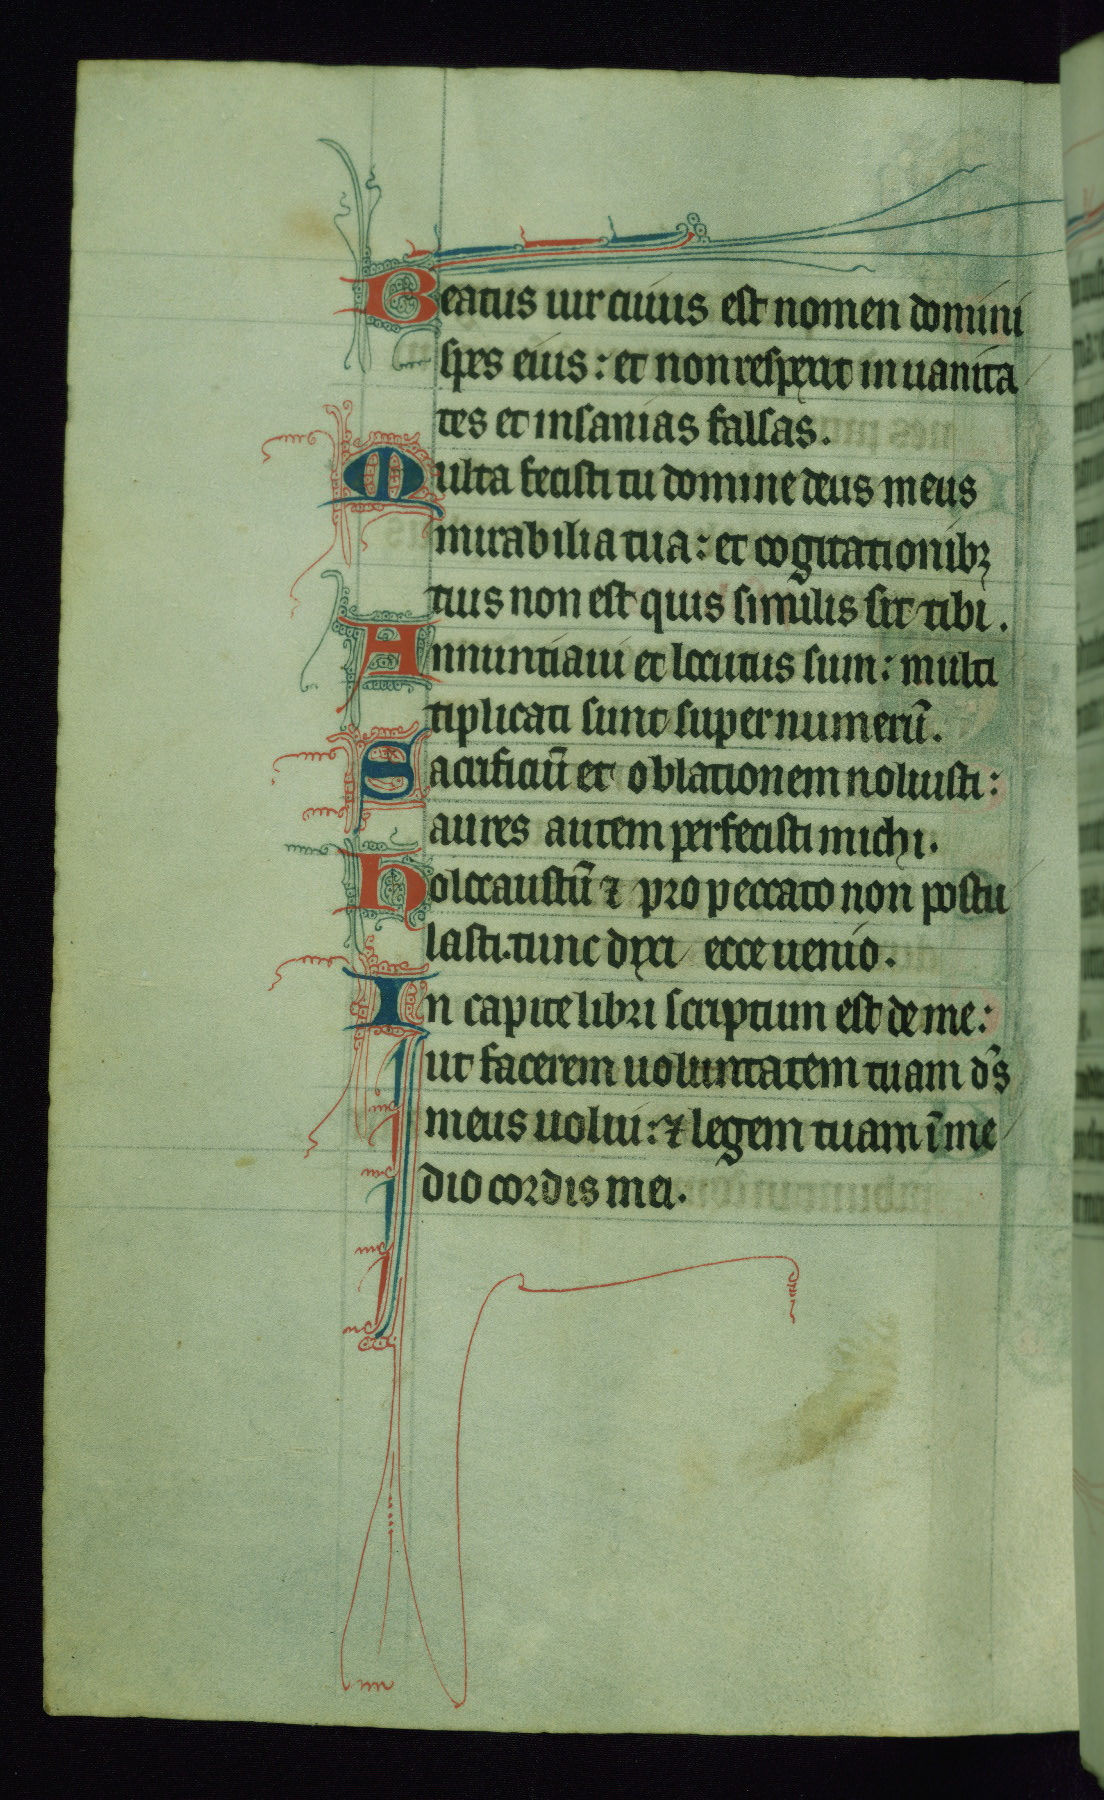 Beatus uir cuius est nomen domini
spes eius: et non respexit in uanita
tes et insanias falsas.
Multa fecisti tu domine deus meus
mirabilia tua: et cogitationibꝫ
tuis non est quis similis sit tibi.
Annuntiaui et locutus sum: multi
tiplicati sunt super numerū.
Sacrificiū et oblationem noluisti:
aures autem perfecisti michi.
Holocaustū ⁊ pro peccato non postu
lasti. tunc dixi ecce uenio.
In capite libri scriptum est de me:
ut facerem uoluntatem tuam d̄s
meus uolui: ⁊ legem tuam ī me
dio cordis mei.